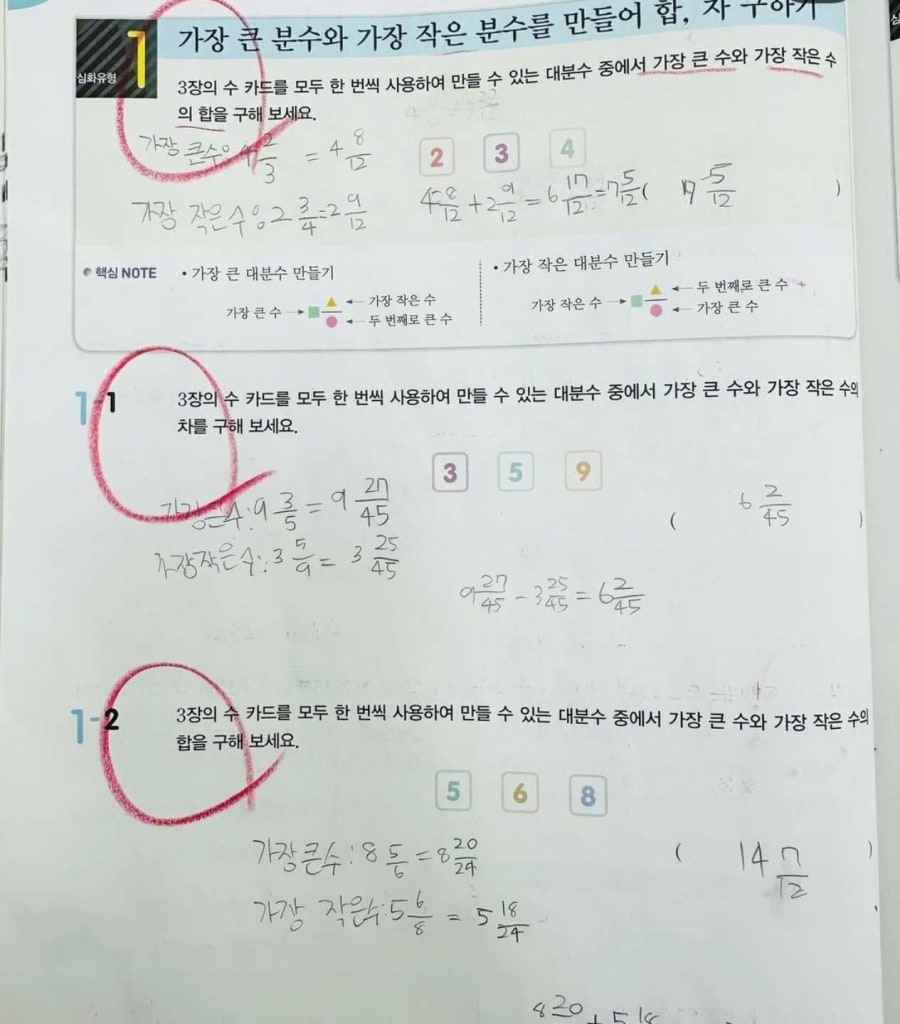 심화유형 1
가장 큰 분수와 가장 작은 분수를 만들어 합, 차 구하기
3장의 수 카드를 모두 한 번씩 사용하여 만들 수 있는 대분수 중에서 가장 큰 수와 가장 작은 수
의 합을 구해 보세요.
2 3 4
가장 큰수: 4 2/3 = 4 8/12
가장 작은수: 2 3/4 = 2 9/12
4 8/12 + 2 9/12 = 6 17/12 = 7 5/12
( 7 5/12 )
핵심 NOTE
• 가장 큰 대분수 만들기
가장 큰 수 → ■ ▲/● ← 가장 작은 수
← 두 번째로 큰 수
• 가장 작은 대분수 만들기
가장 작은 수 → ■ ▲/● ← 두 번째로 큰 수
← 가장 큰 수
1-1
3장의 수 카드를 모두 한 번씩 사용하여 만들 수 있는 대분수 중에서 가장 큰 수와 가장 작은 수의
차를 구해 보세요.
3 5 9
가장큰수: 9 3/5 = 9 27/45
가장작은수: 3 5/9 = 3 25/45
( 6 2/45 )
9 27/45 - 3 25/45 = 6 2/45
1-2
3장의 수 카드를 모두 한 번씩 사용하여 만들 수 있는 대분수 중에서 가장 큰 수와 가장 작은 수의
합을 구해 보세요.
5 6 8
가장큰수: 8 5/6 = 8 20/24
가장 작은수: 5 6/8 = 5 18/24
( 14 7/12 )
8 20 + 5 18